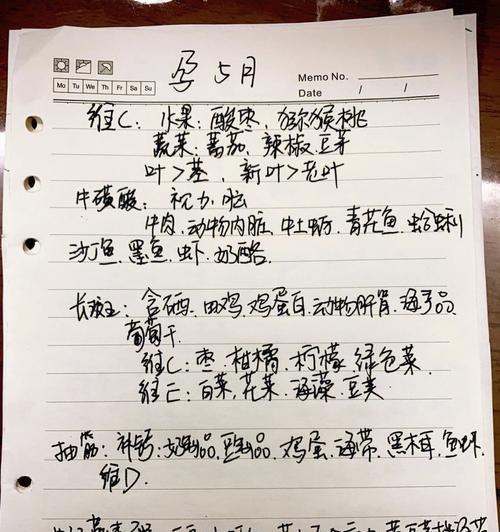 孕5月
Memo No.
Mo Tu We Th Fr Sa Su
Date / /
维C: 水果: 酸枣、猕猴桃
蔬菜: 蕃茄、辣椒、豆芽
叶>茎、新叶>老叶
牛磺酸: 视力、脑
牛肉、动物内脏、牡蛎、青花鱼、蛤蜊
沙丁鱼、墨鱼、虾、奶酪
长斑: 含硒、田鸡、鸡蛋白、动物肝肾、海产品
葡萄干
维C: 枣、柑橘、柠檬、绿色菜
维E: 白菜、花菜、海藻、豆类
抽筋: 补钙: 奶制品、豆制品、鸡蛋、海带、黑木耳、鱼虾
维D.